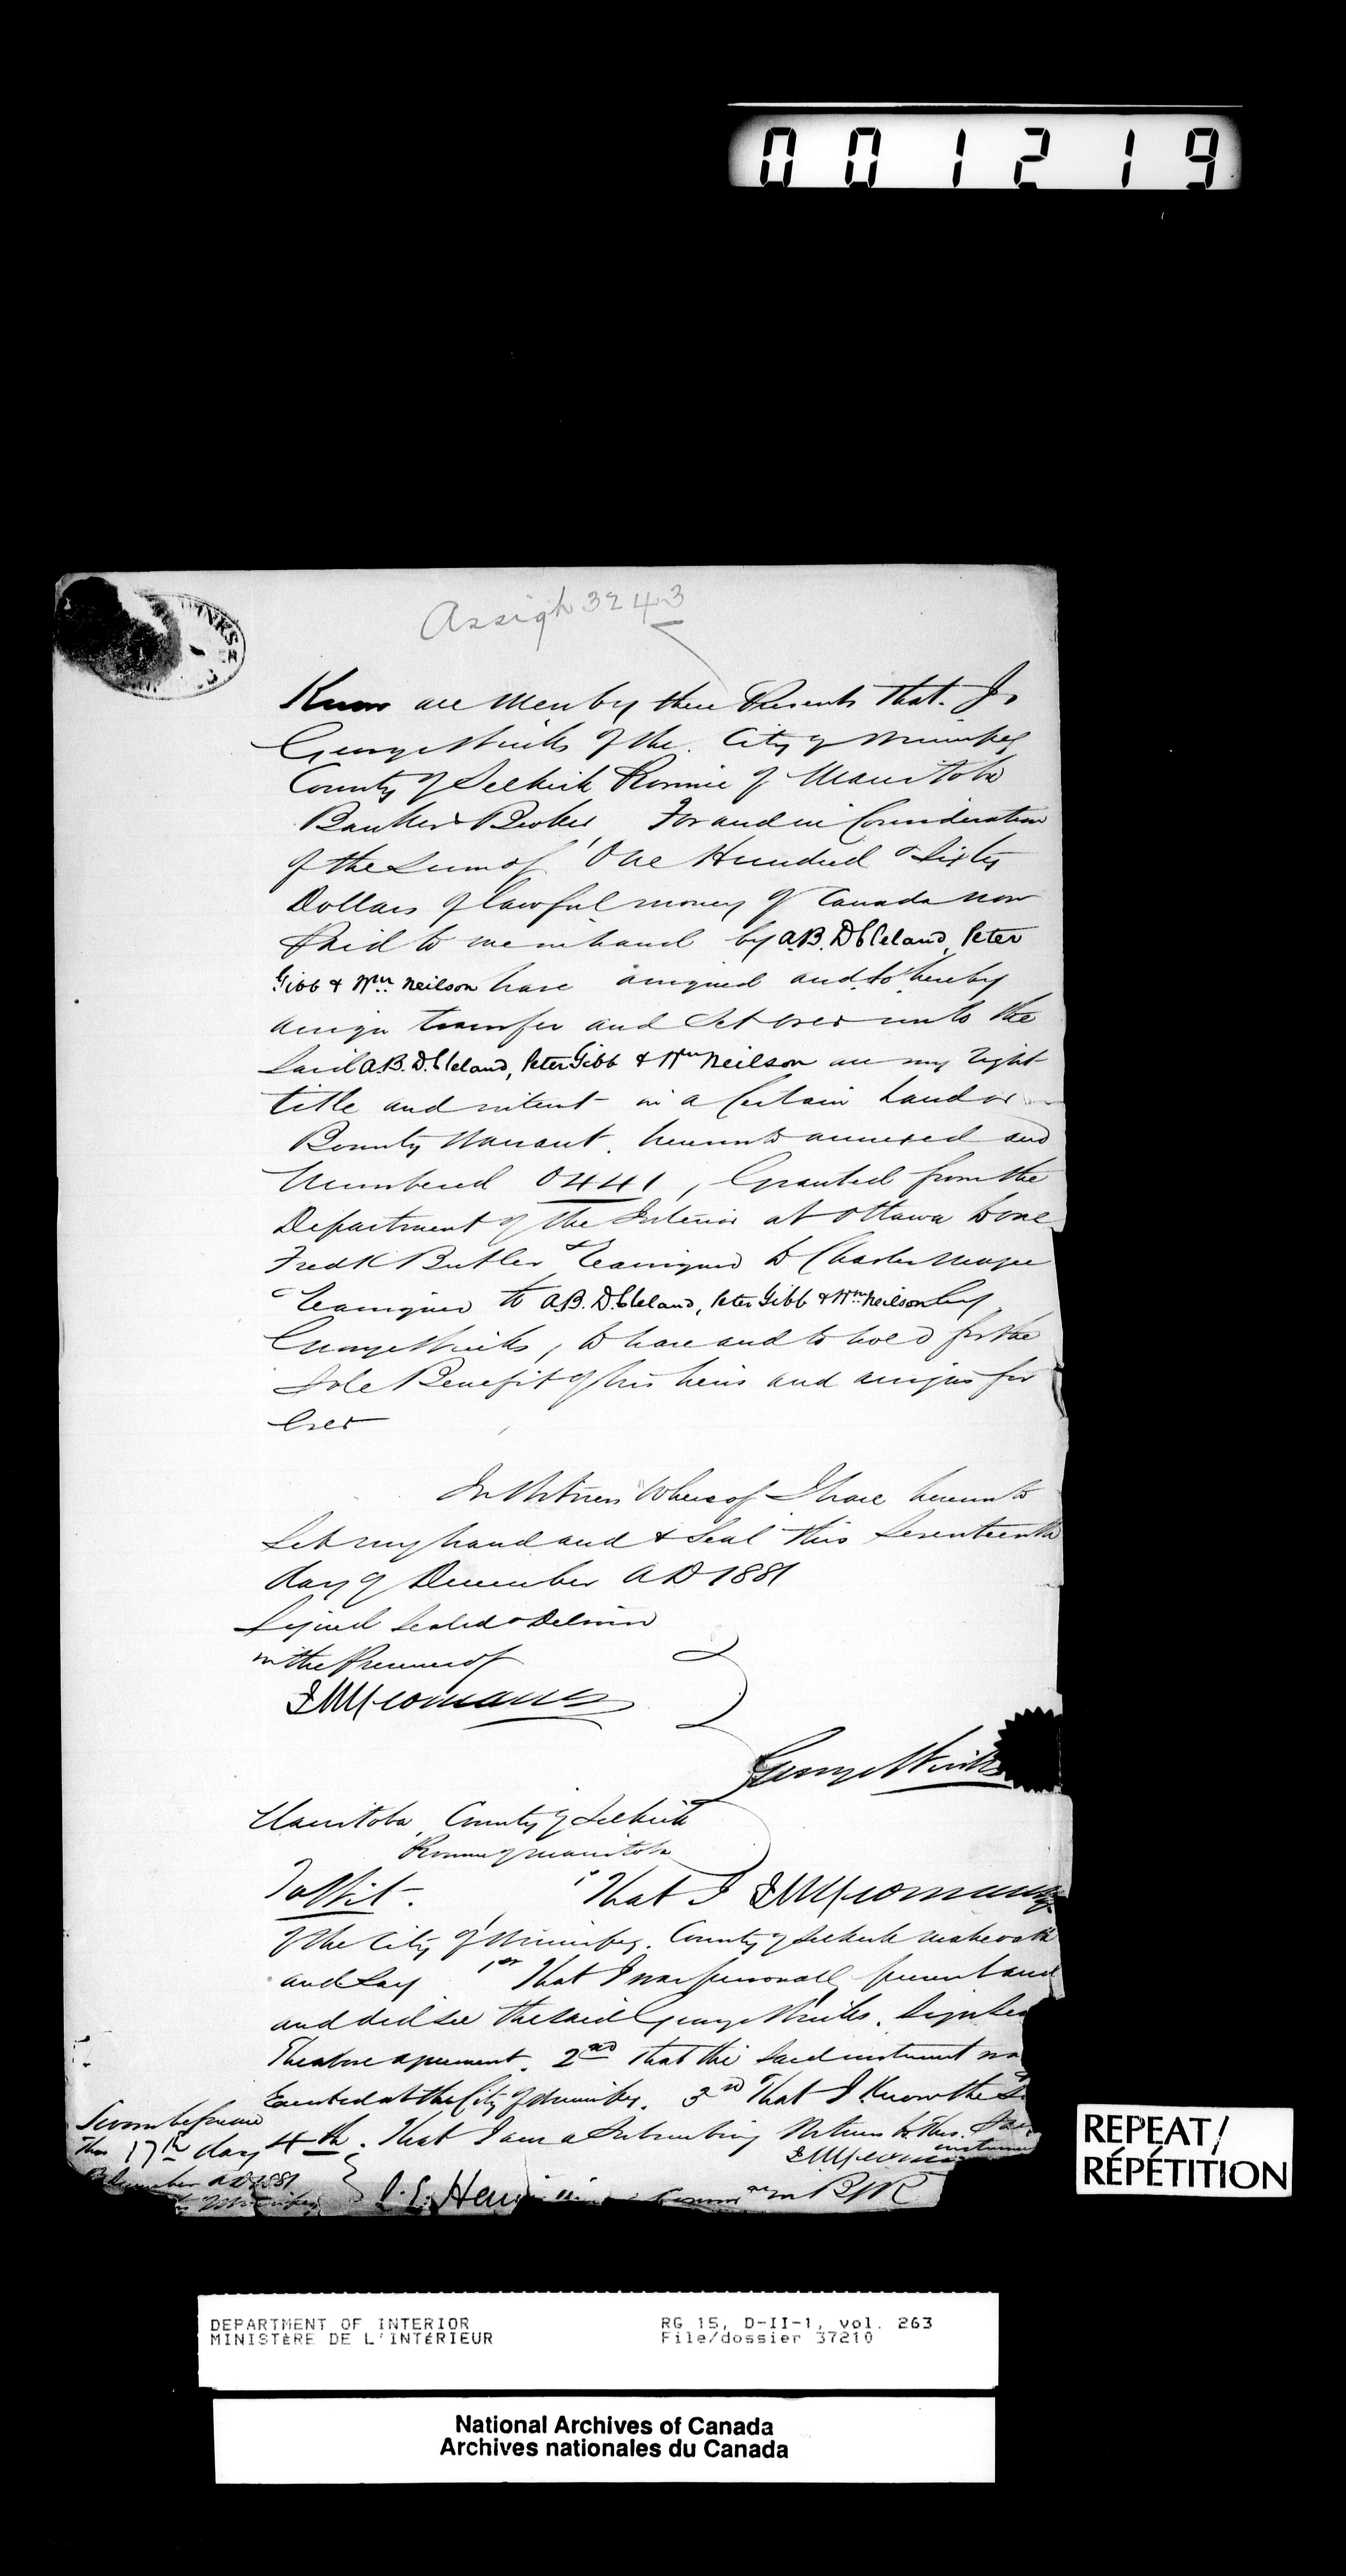 001219
Assign 3243
Know all Men by these Presents that I,
George Wicks of the City of Winnipeg
County of Selkirk Province of Manitoba
Banker & Broker, For and in Consideration
of the Sum of One Hundred & Sixty
Dollars of lawful money of Canada now
Paid to me in hand by A.B. D. Cleland, Peter
Gibb & Wm. Neilson have assigned and do hereby
assign transfer and Set over unto the
Said A.B. D. Cleland, Peter Gibb & Wm Neilson all my right
title and interest in a Certain Land or
Bounty Warrant hereunto annexed and
Numbered 0441, Granted from the
Department of the Interior at Ottawa to one
Fredk Butler & assigned to Charles Magee
& assigned to A.B. D. Cleland, Peter Gibb & Wm. Neilson by
George Wicks, to have and to hold for the
Sole Benefit of his heirs and assigns for
Ever
In Witness Whereof I have hereunto
Set my hand and & Seal this Seventeenth
day of December AD 1881
Signed Sealed & Deliver
in the Presence of
George Wicks
Manitoba, County of Selkirk
Province of Manitoba
To Wit. That I
of the City of Winnipeg. County of Selkirk make oath
and Say 1st That I was personally present and
and did see the said George Wicks. Sign Sea
The above agreement. 2nd That the Said instrument was
Executed at the City of Winnipeg. 3rd That I Know the
Sworn before me
This 17th day 4th. That I am a Subscribing Witness to This
instrument
December AD 1881
of Winnipeg
in B/R
REPEAT/
RÉPÉTITION
DEPARTMENT OF INTERIOR RG 15, D-II-1, vol. 263
MINISTÈRE DE L'INTÉRIEUR File/dossier 37210
National Archives of Canada
Archives nationales du Canada